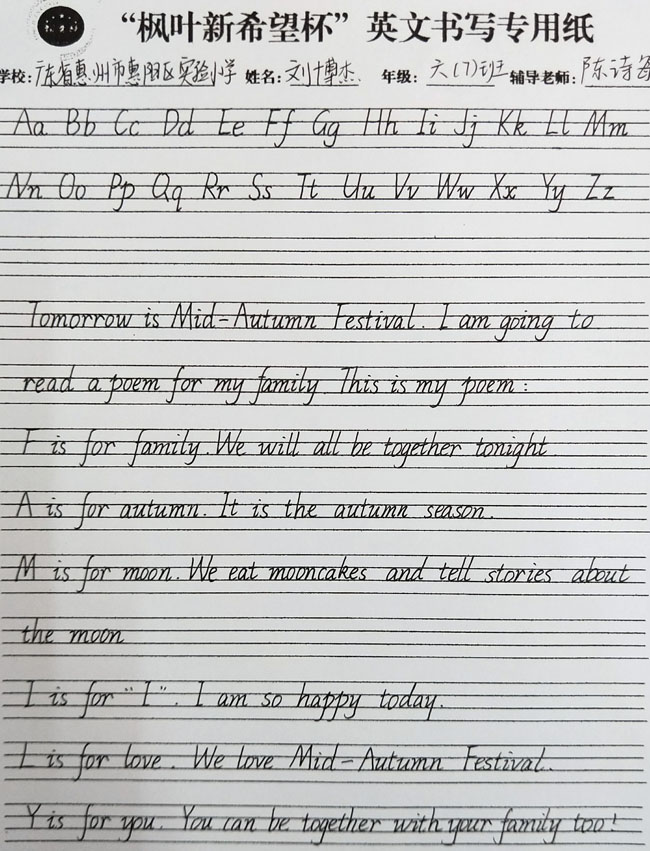 “枫叶新希望杯”英文书写专用纸
学校: 广东省惠州市惠阳区实验小学 姓名: 刘博杰 年级: 六(7)班 辅导老师: 陈诗
Aa Bb Cc Dd Ee Ff Gg Hh Ii Jj Kk Ll Mm
Nn Oo Pp Qq Rr Ss Tt Uu Vv Ww Xx Yy Zz
Tomorrow is Mid-Autumn Festival. I am going to
read a poem for my family. This is my poem:
F is for family. We will all be together tonight
A is for autumn. It is the autumn season.
M is for moon. We eat mooncakes and tell stories about
the moon
I is for "I". I am so happy today.
L is for love. We love Mid-Autumn Festival.
Y is for you. You can be together with your family too!